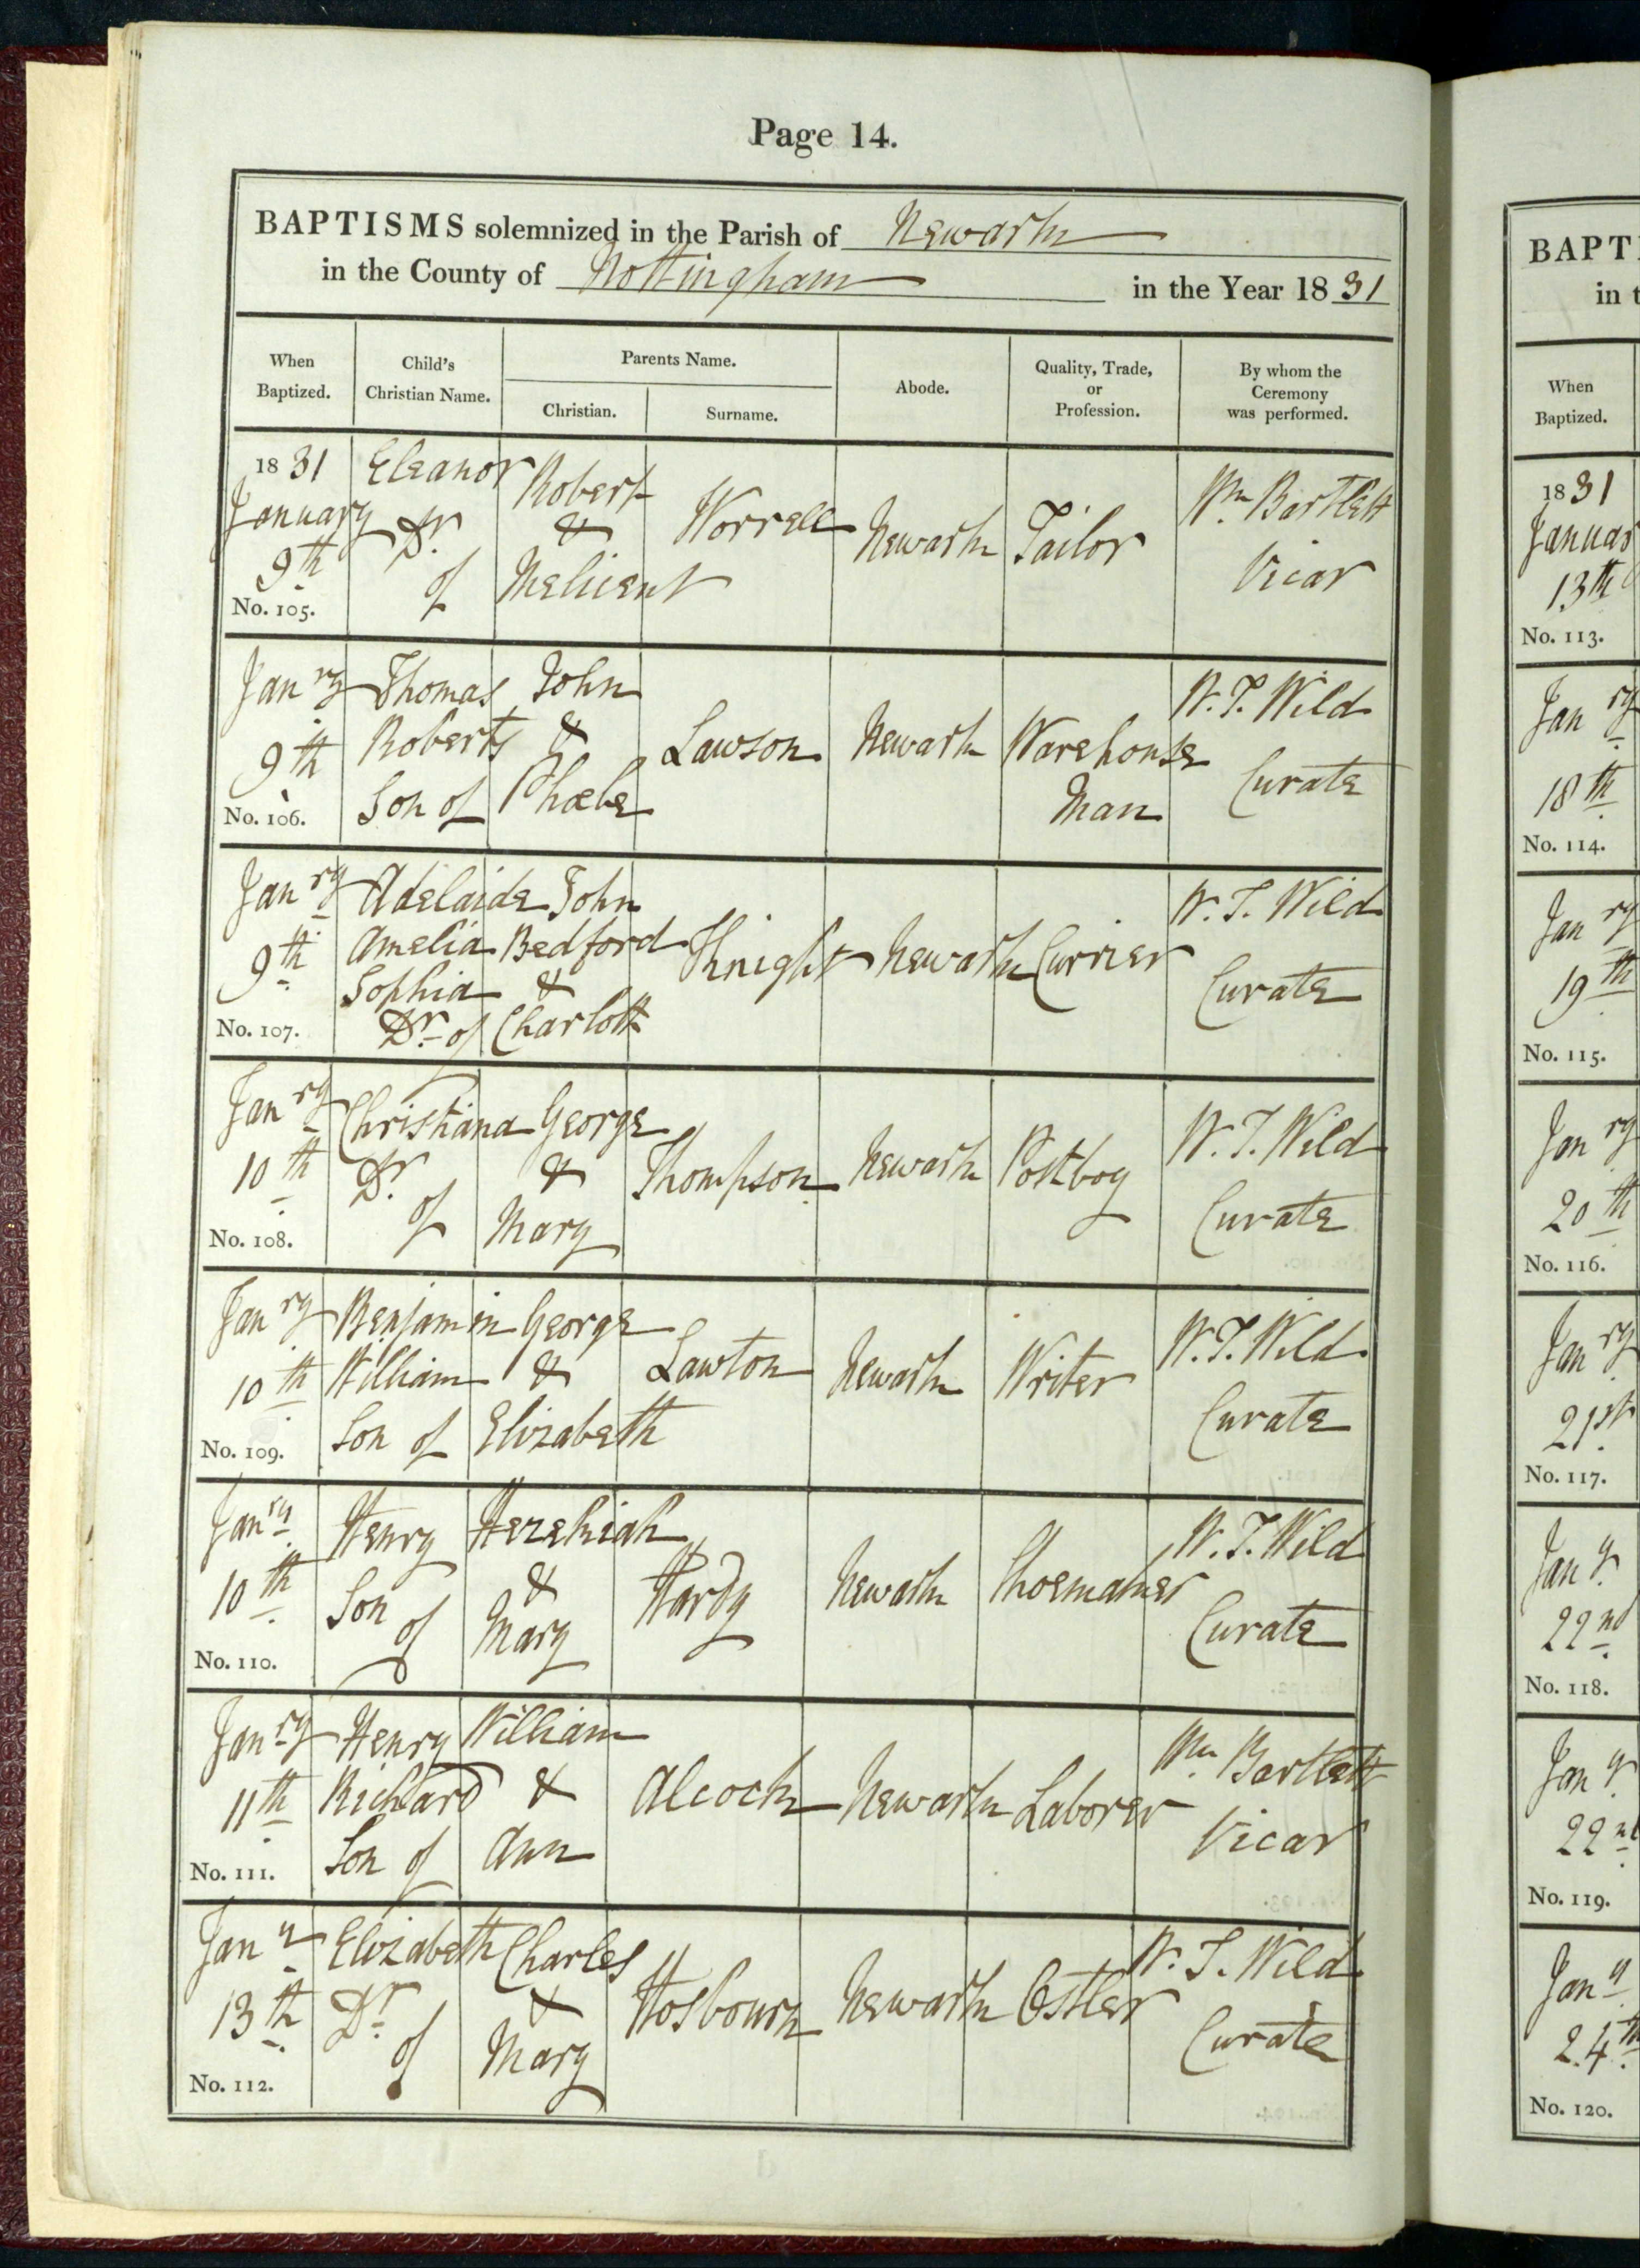 Page 14.
BAPTISMS solemnized in the Parish of Newark
in the County of Nottingham in the Year 1831
When Baptized.
Child's Christian Name.
Parents Name.
Christian.
Surname.
Abode.
Quality, Trade, or Profession.
By whom the Ceremony was performed.
1831
January
9th
No. 105.
Eleanor
Dr.
of
Robert
&
Melicent
Worrell
Newark
Tailor
Wm Bartlett
Vicar
Janry
9th
No. 106.
Thomas
Roberts
Son of
John
&
Phœbe
Lawson
Newark
Warehouse
Man
W. T. Wild
Curate
Janry
9th
No. 107.
Adelaide
Amelia
Sophia
Dr. of
John
Bedford
&
Charlott
Knight
Newark
Currier
W. T. Wild
Curate
Janry
10th
No. 108.
Christiana
Dr.
of
George
&
Mary
Thompson
Newark
Postboy
W. T. Wild
Curate
Janry
10th
No. 109.
Benjamin
William
Son of
George
&
Elizabeth
Lawton
Newark
Writer
W. T. Wild
Curate
Janry
10th
No. 110.
Henry
Son
of
Hezekiah
&
Mary
Hardy
Newark
Shoemaker
W. T. Wild
Curate
Janry
11th
No. 111.
Henry
Richard
Son of
William
&
Ann
Alcock
Newark
Laborer
Wm Bartlett
Vicar
Jany
13th
No. 112.
Elizabeth
Dr.
of
Charles
&
Mary
Hosbourn
Newark
Ostler
W. T. Wild
Curate
BAPTI
in t
When
Baptized.
1831
Januar
13th
No. 113.
Janry
18th
No. 114.
Janry
19th
No. 115.
Janry
20th
No. 116.
Janry
21st
No. 117.
Jany
22nd
No. 118.
Jany
22nd
No. 119.
Jany
24th
No. 120.